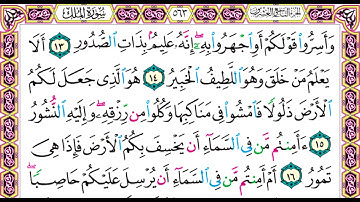 الجزء التاسع والعشرون ٥٦٣ سورة الملك
وَأَسِرُّوا۟ قَوْلَكُمْ أَوِ ٱجْهَرُوا۟ بِهِۦٓ ۖ إِنَّهُۥ عَلِيمٌۢ بِذَاتِ ٱلصُّدُورِ ١٣ أَلَا
يَعْلَمُ مَنْ خَلَقَ وَهُوَ ٱللَّطِيفُ ٱلْخَبِيرُ ١٤ هُوَ ٱلَّذِى جَعَلَ لَكُمُ
ٱلْأَرْضَ ذَلُولًا فَٱمْشُوا۟ فِى مَنَاكِبِهَا وَكُلُوا۟ مِن رِّزْقِهِۦ ۖ وَإِلَيْهِ ٱلنُّشُورُ
١٥ ءَأَمِنتُم مَّن فِى ٱلسَّمَآءِ أَن يَخْسِفَ بِكُمُ ٱلْأَرْضَ فَإِذَا هِىَ
تَمُورُ ١٦ أَمْ أَمِنتُم مَّن فِى ٱلسَّمَآءِ أَن يُرْسِلَ عَلَيْكُمْ حَاصِبًا ۖ